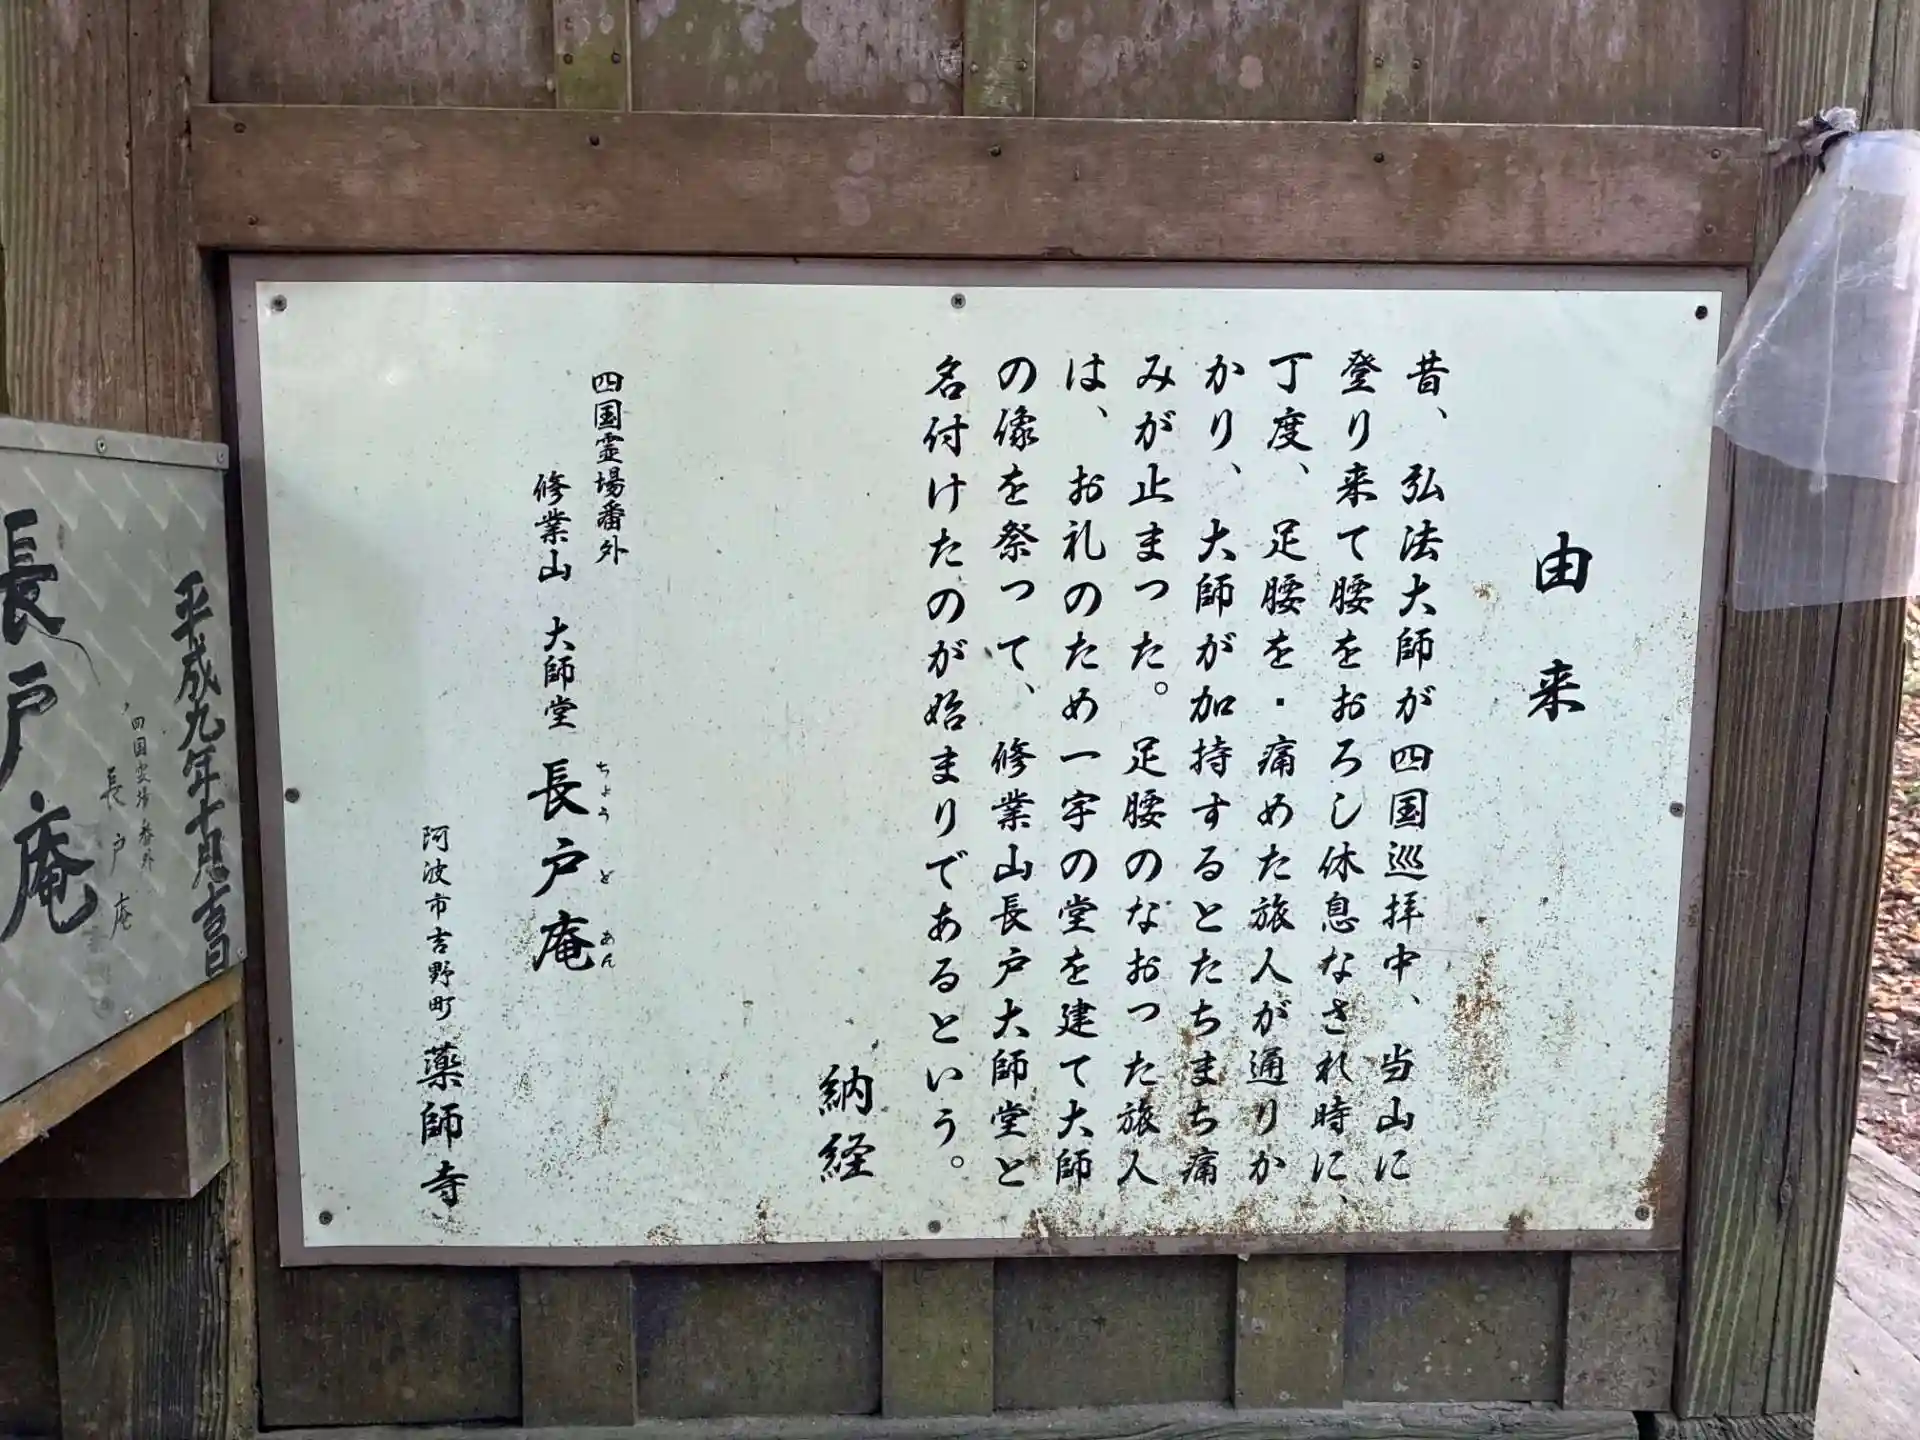 由来
昔、弘法大師が四国巡拝中、当山に
登り来て腰をおろし休息なされ時に、
丁度、足腰を・痛めた旅人が通りか
かり、大師が加持するとたちまち痛
みが止まった。足腰のなおった旅人
は、お礼のため一宇の堂を建て大師
の像を祭って、修業山長戸大師堂と
名付けたのが始まりであるという。
納経
四国霊場番外
修業山 大師堂 長戸庵
ちょう と あん
阿波市吉野町 薬師寺
平成九年十月吉日
四国霊場番外
長戸庵
長戸庵